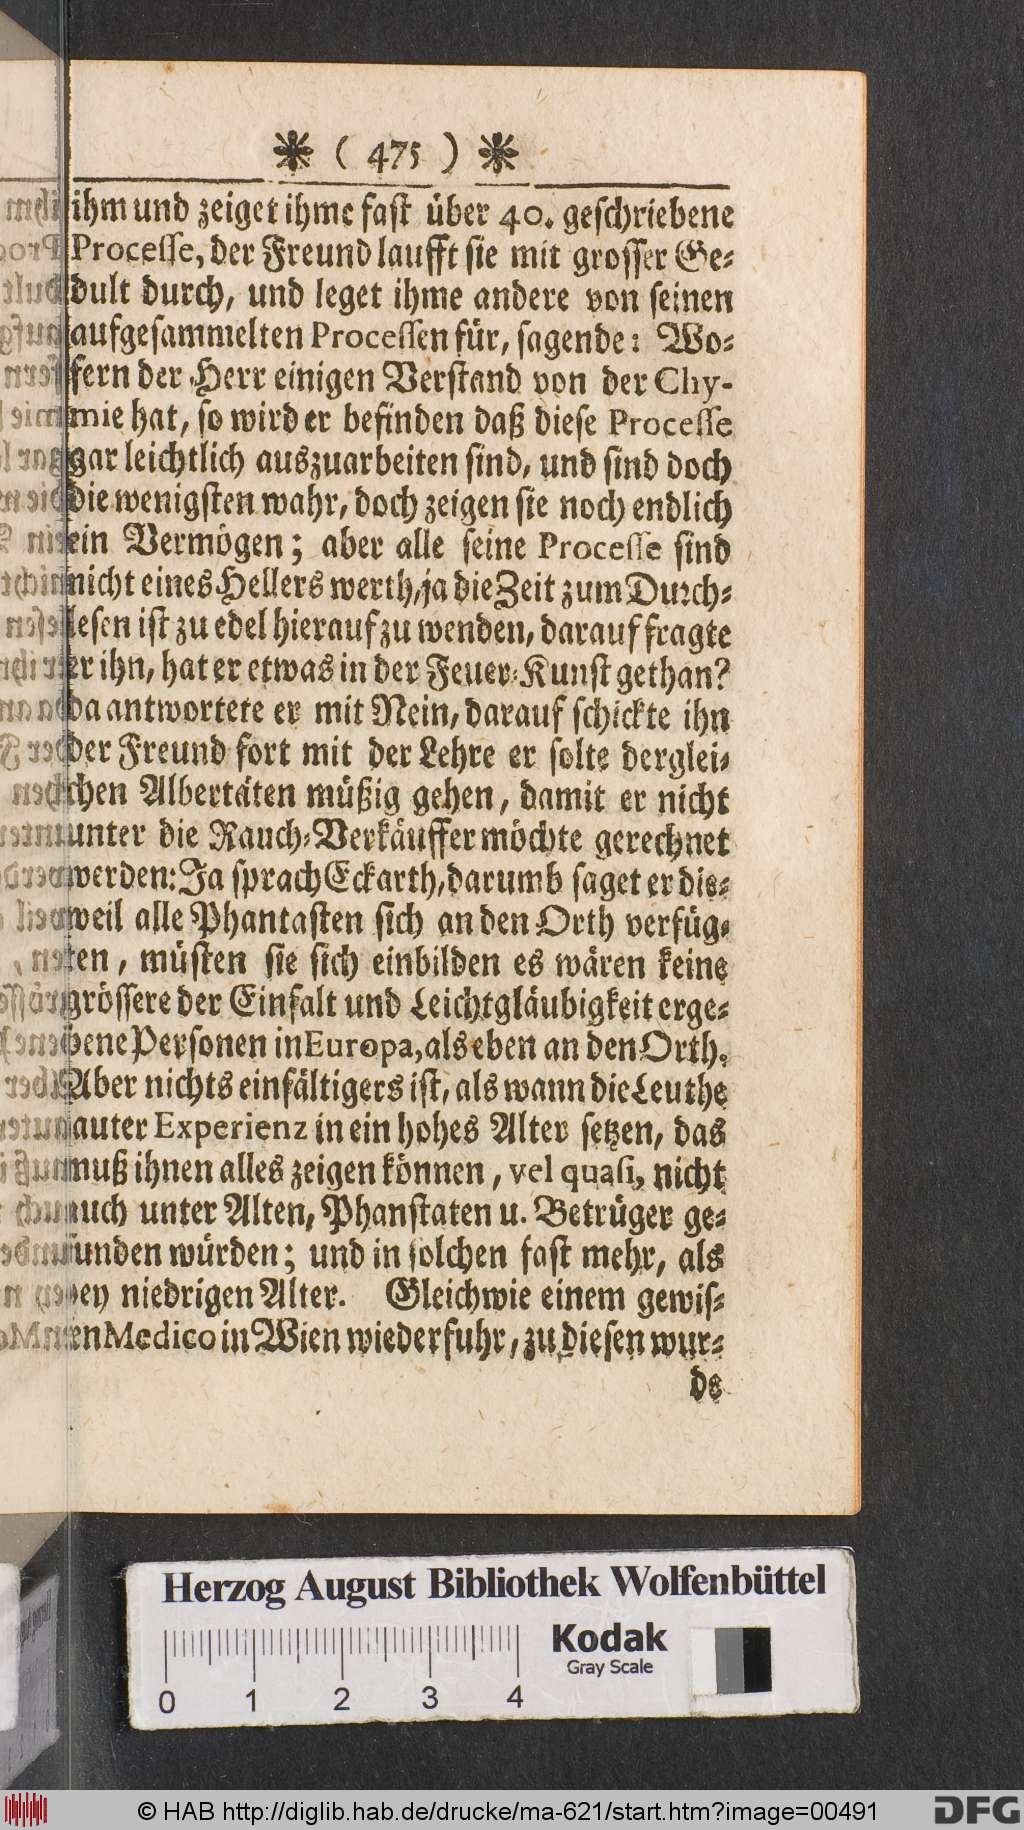 ❋ ( 475 ) ❋
ihm und zeiget ihme fast über 40. geschriebene
Processe, der Freund laufft sie mit grosser Ge-
dult durch, und leget ihme andere von seinen
aufgesammelten Processen für, sagende: Wo-
fern der Herr einigen Verstand von der Chy-
mie hat, so wird er befinden daß diese Processe
gar leichtlich auszuarbeiten sind, und sind doch
die wenigsten wahr, doch zeigen sie noch endlich
ein Vermögen; aber alle seine Processe sind
nicht eines Hellers werth, ja die Zeit zum Durch-
lesen ist zu edel hierauf zu wenden, darauf fragte
er ihn, hat er etwas in der Feuer-Kunst gethan?
da antwortete er mit Nein, darauf schickte ihn
der Freund fort mit der Lehre er solte derglei-
chen Albertäten müßig gehen, damit er nicht
unter die Rauch-Verkäuffer möchte gerechnet
werden: Ja sprach Eckarth, darumb saget er die-
weil alle Phantasten sich an den Orth verfüg-
ten, müsten sie sich einbilden es wären keine
grössere der Einfalt und Leichtgläubigkeit erge-
bene Personen in Europa, als eben an den Orth.
Aber nichts einfältigers ist, als wann die Leuthe
lauter Experienz in ein hohes Alter setzen, das
muß ihnen alles zeigen können, vel quasi, nicht
auch unter Alten, Phanstaten u. Betrüger ge-
funden würden; und in solchen fast mehr, als
bey niedrigen Alter. Gleichwie einem gewis-
sen Medico in Wien wiederfuhr, zu diesen wur-
de
Herzog August Bibliothek Wolfenbüttel
Kodak
Gray Scale
0 1 2 3 4
© HAB http://diglib.hab.de/drucke/ma-621/start.htm?image=00491
DFG